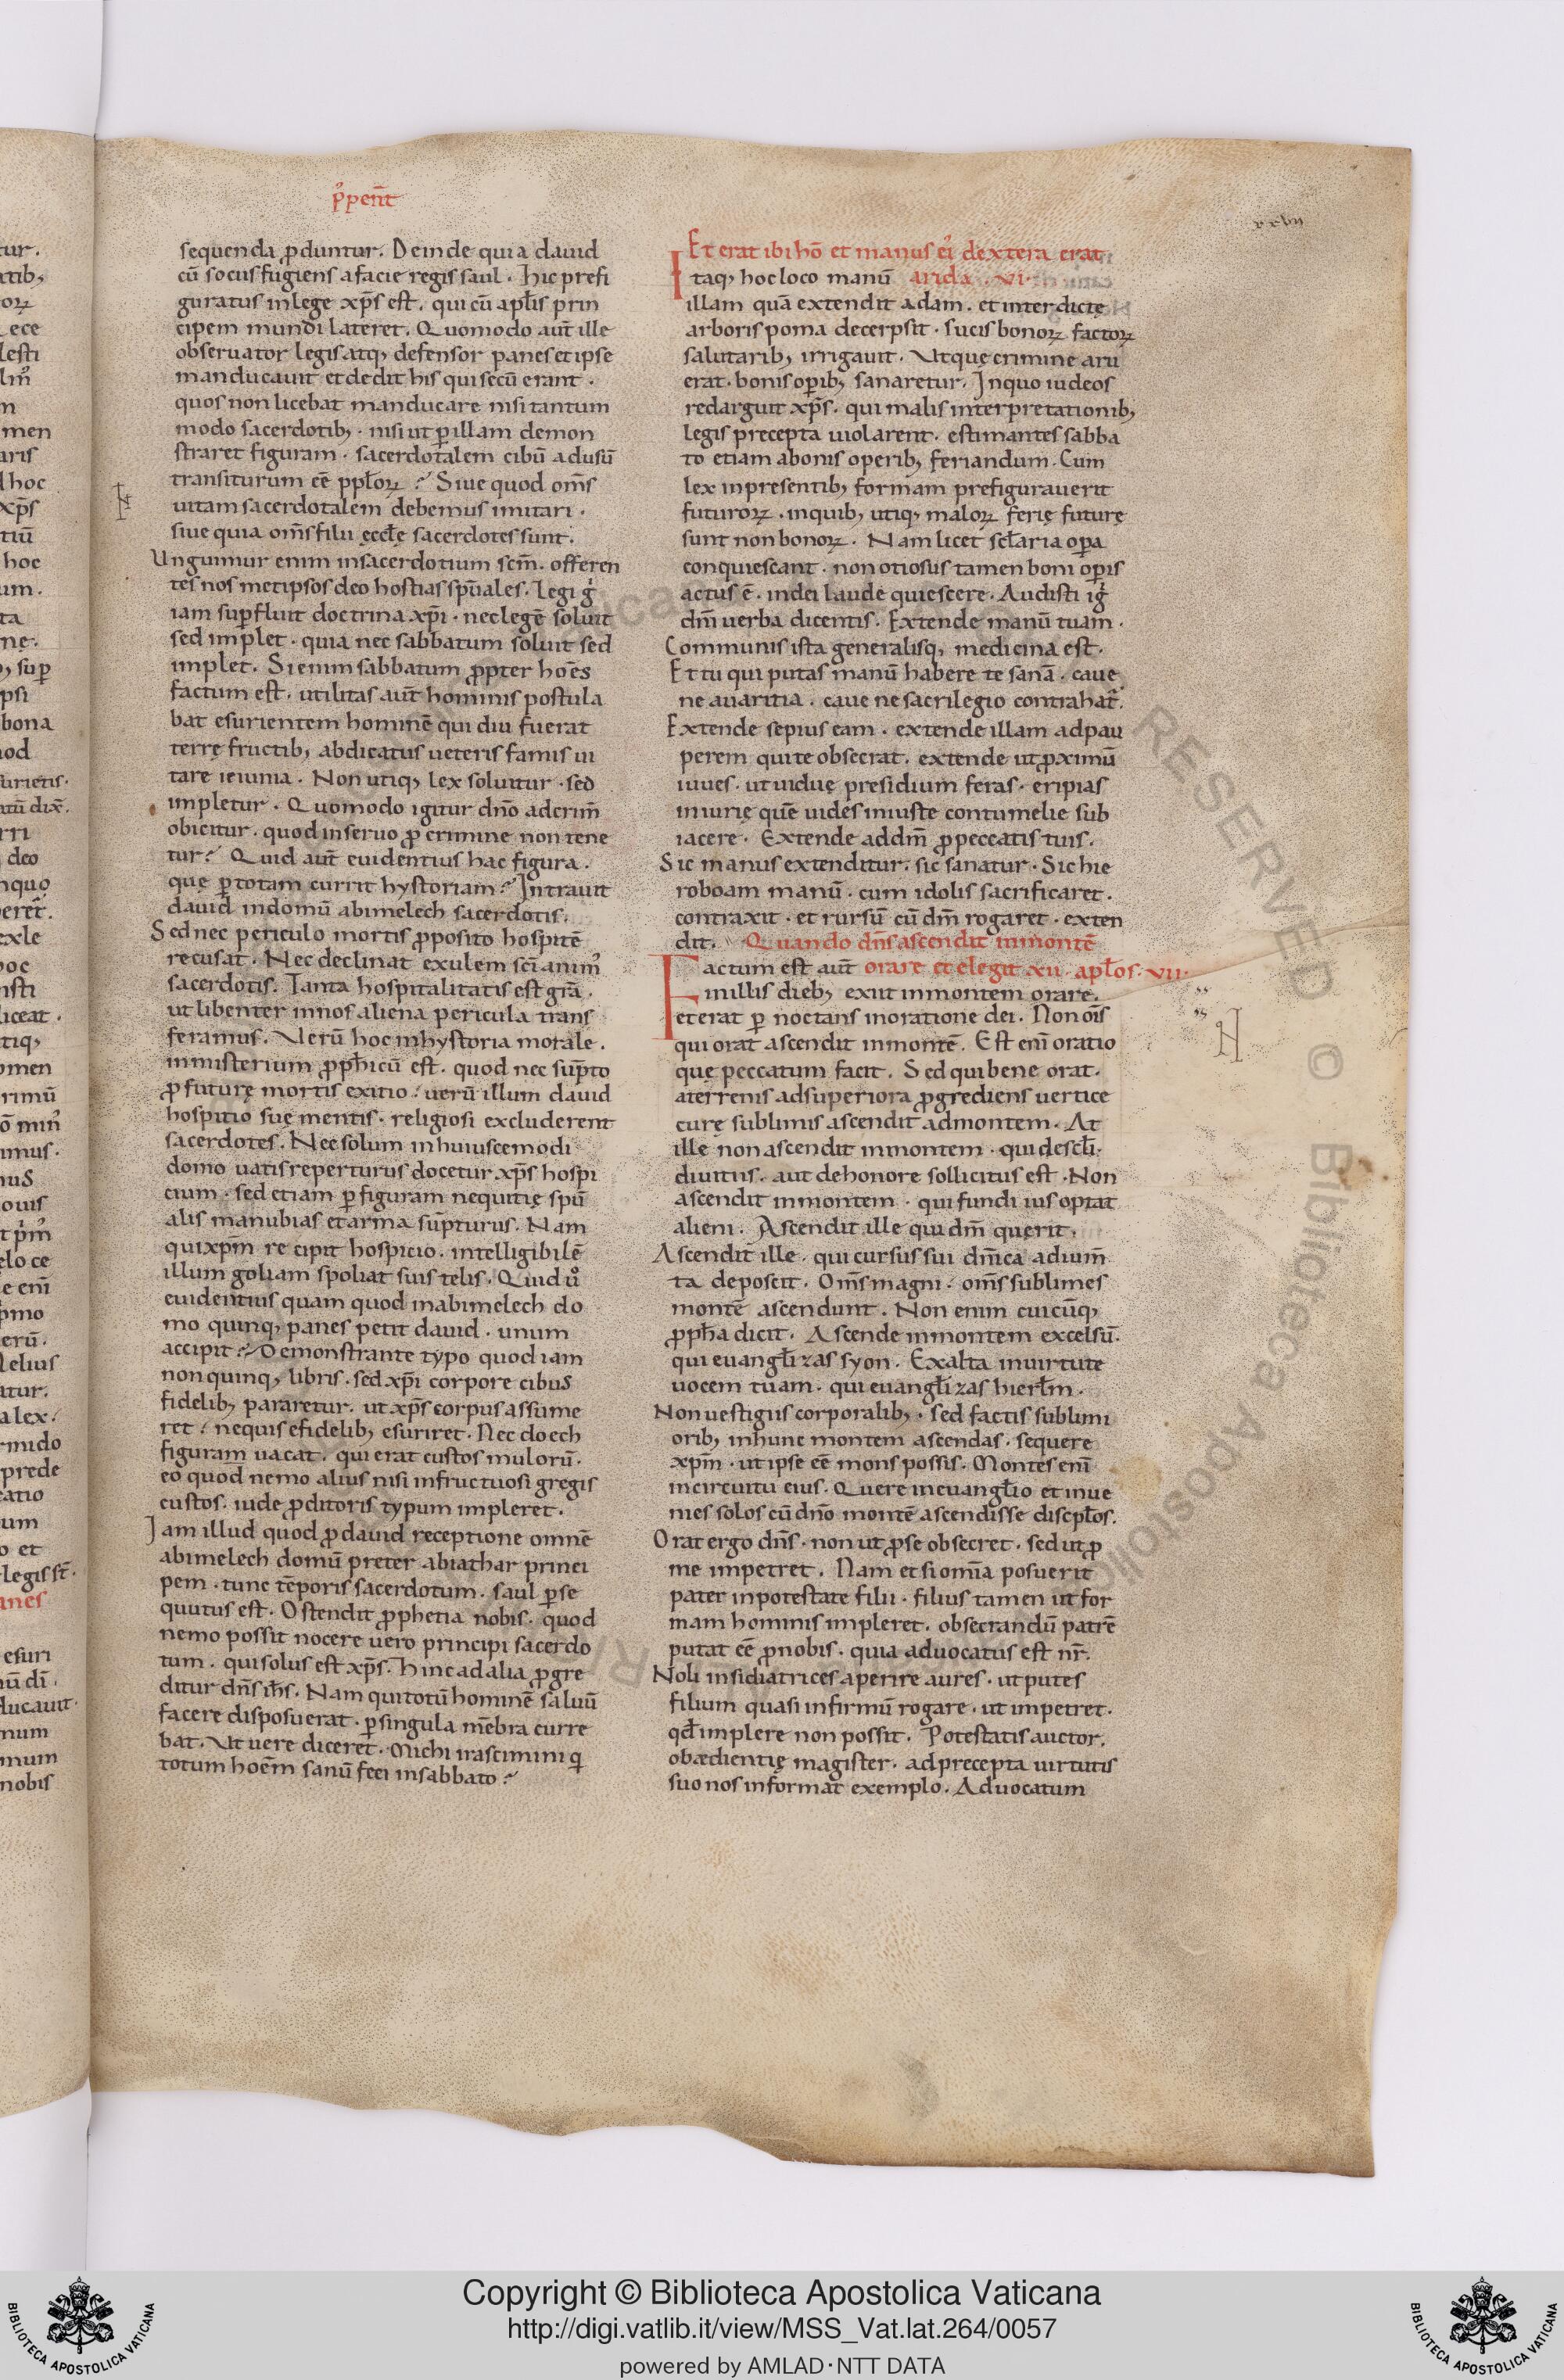 p̊penт̄
xxvii
sequenda ꝓduntur. Deinde quia dauid
cū sociis fugiens a facie regis saul. hic prefi
guratus in lege xp̄s est. qui cū apl̄is prin
cipem mundi lateret. Quomodo aut̄ ille
obseruator legis atq; defensor panes et ipse
manducauit et dedit his qui secū erant.
quos non licebat manducare nisi tantum
modo sacerdotib; . nisi ut ꝑ illam demon
straret figuram. sacerdotalem cibū ad usū
transiturum eē ppl̄oꝝ? Siue quod om̄s
uitam sacerdotalem debemus imitari.
siue quia om̄s filii ęccl̄ę sacerdotes sunt.
Unguimur enim in sacerdotium sc̄m. offeren
tes nos metipsos deo hostias spūales. Legi g̊
iam suꝑfluit doctrina xp̄i. nec legē soluit
sed implet. quia nec sabbatum soluit sed
implet. Si enim sabbatum ꝓpter hoēs
factum est. utilitas aut̄ hominis postula
bat esurientem hominē qui diu fuerat
terrę fructib; abdicatus ueteris famis ui
tare ieiunia. Non utiq; lex soluitur. sed
impletur. Quomodo igitur dn̄o ad crim̄
obicitur. quod in seruo ꝓ crimine non tene
tur? Quid aut̄ euidentius hac figura.
quę ꝑ totam currit hystoriam? Intrauit
dauid in domū abimelech sacerdotis.
Sed nec periculo mortis ꝓposito hospitē
recusat. Nec declinat exulem sc̄i anim᾽
sacerdotis. Tanta hospitalitatis est gr̄a.
ut libenter in nos aliena pericula trans
feramus. Verū hoc in hystoria morale.
in misterium ꝓph̄icū est. quod nec sūpto
ꝓ futurę mortis exitio. uerū illum dauid
hospitio suę mentis. religiosi excluderent
sacerdotes. Nec solum in huiuscemodi
domo uatis reperturus docetur xp̄s hospi
cium. sed etiam ꝑ figuram nequitię spū
alis manubias et arma sūpturus. Nam
qui xp̄m recipit hospicio. intelligibilē
illum goliam spoliat suis telis. Quid ů
euidentius quam quod in abimelech do
mo quinq; panes petit dauid. unum
accipit? Demonstrante typo quod iam
non quinq; libris. sed xp̄i corpore cibus
fidelib; pararetur. ut xp̄s corpus assume
ret. nequis e fidelib; esuriret. Nec doech
figuram uacat. qui erat custos mulorū.
eo quod nemo alius nisi infructuosi gregis
custos. iude ꝓditoris typum impleret.
Iam illud quod ꝓ dauid receptione omnē
abimelech domū preter abiathar princi
pem. tunc tēporis sacerdotum. saul ꝑse
quutus est. Ostendit ꝓphetia nobis. quod
nemo possit nocere uero principi sacerdo
tum. qui solus est xp̄s. Hinc ad alia ꝓgre
ditur dn̄s ih̄s. Nam qui totū hominē saluū
facere disposuerat. ꝑ singula mēbra curre
bat. Ut uere diceret. Michi irascimini q̇
totum hoēm sanū feci in sabbato?
Et erat ibi hō et manus ei᾽ dextera erat
Itaq; hoc loco manū arida. xi.
illam quā extendit adam. et interdictę
arboris poma decerpsit. sucis bonoꝝ factoꝝ
salutarib; irrigauit. Ut quę crimine aru
erat. bonis opib; sanaretur. In quo iudeos
redarguit xp̄s. qui malis interpretationib;
legis precepta uiolarent. estimantes sabba
to etiam a bonis operib; feriandum. Cum
lex in presentib; formam prefigurauerit
futuroꝝ. in quib; utiq; maloꝝ ferię futurę
sunt non bonoꝝ. Nam licet scl̄aria oꝑa
conquiescant. non otiosus tamen boni oꝑis
actus ē. in dei laude quiescere. Audisti ig̊
dm̄ uerba dicentis. Extende manū tuam.
Communis ista generalisq; medicina est.
Et tu qui putas manū habere te sanā. caue
ne auaritia. caue ne sacrilegio contrahat᾽.
Extende sepius eam. extende illam ad pau
perem qui te obsecrat. extende ut ꝓximū
iuues. ut uiduę presidium feras. eripias
iniurię quē uides iniuste contumelie sub
iacere. Extende ad dm̄ ꝓ peccatis tuis.
Sic manus extenditur. sic sanatur. Sic hie
roboam manū. cum idolis sacrificaret.
contraxit. et rursū cū dm̄ rogaret. exten
dit. Quando dn̄s ascendit in montē
Factum est aut̄ orare et elegit xii. apl̄os. vii.
in illis dieb; exiit in montem orare.
et erat ꝑ noctans in oratione dei. Non oīs
qui orat ascendit in montē. Est eni̅ oratio
quę peccatum facit. Sed qui bene orat.
a terrenis ad superiora ꝓgrediens uertice
curę sublimis ascendit ad montem. At
ille non ascendit in montem. qui de scl̄i.
diuitiis. aut de honore sollicitus est. Non
ascendit in montem. qui fundi ius optat
alieni. Ascendit ille qui dm̄ querit.
Ascendit ille. qui cursus sui dn̄ica adium̄
ta deposcit. Om̄s magni. om̄s sublimes
montē ascendunt. Non enim cuicūq;
ꝓph̄a dicit. Ascende in montem excelsū.
qui euangl̄izas syon. Exalta in uirtute
uocem tuam. qui euangl̄izas hierl̄m.
Non uestigiis corporalib; . sed factis sublimi
orib; in hunc montem ascendas. sequere
xp̄m. ut ipse eē mons possis. Montes eni̅
in circuitu eius. Quere in euangl̄io et inue
nies solos cū dn̄o montē ascendisse discipl̄os.
Orat ergo dn̄s. non ut ꝓ se obsecret. sed ut ꝓ
me impetret. Nam et si omia̅ posuerit
pater in potestate filii. filius tamen ut for
mam hominis impleret. obsecrandū patrē
putat eē ꝓ nobis. quia aduocatus est nr̄.
Noli insidiatrices aperire aures. ut putes
filium quasi infirmū rogare. ut impetret.
qd̄ implere non possit. Potestatis auctor.
obædientię magister. ad precepta uirtutis
suo nos informat exemplo. Aduocatum
Copyright © Biblioteca Apostolica Vaticana
http://digi.vatlib.it/view/MSS_Vat.lat.264/0057
powered by AMLAD·NTT DATA
BIBLIOTECA APOSTOLICA VATICANA
BIBLIOTECA APOSTOLICA VATICANA